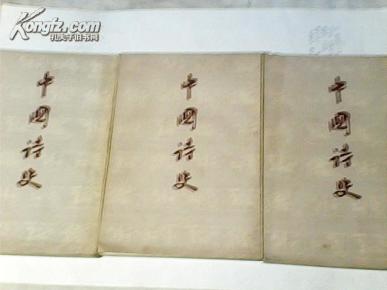 Kongfz.com
孔夫子旧书网
中國诗史
中國诗史
中國诗史